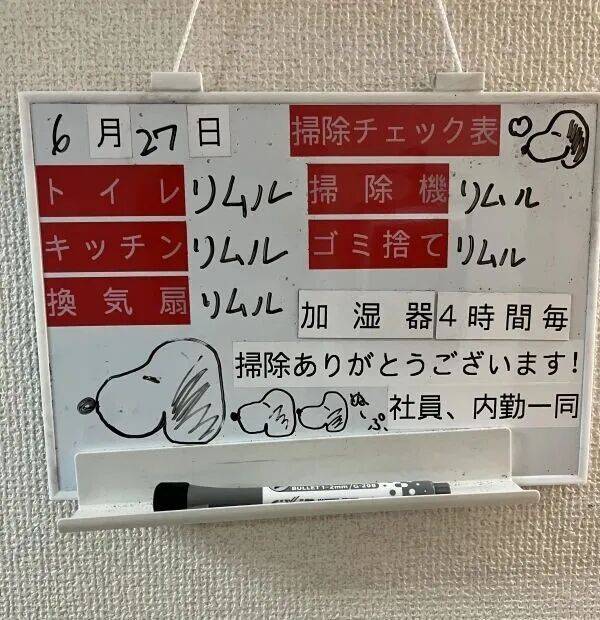 6月27日 掃除チェック表
トイレ リムル 掃除機 リムル
キッチン リムル ゴミ捨て リムル
換気扇 リムル
加湿器4時間毎
掃除ありがとうございます!
ぬ~ぷ。 社員、内勤一同
BULLET 1-2mm/G-208